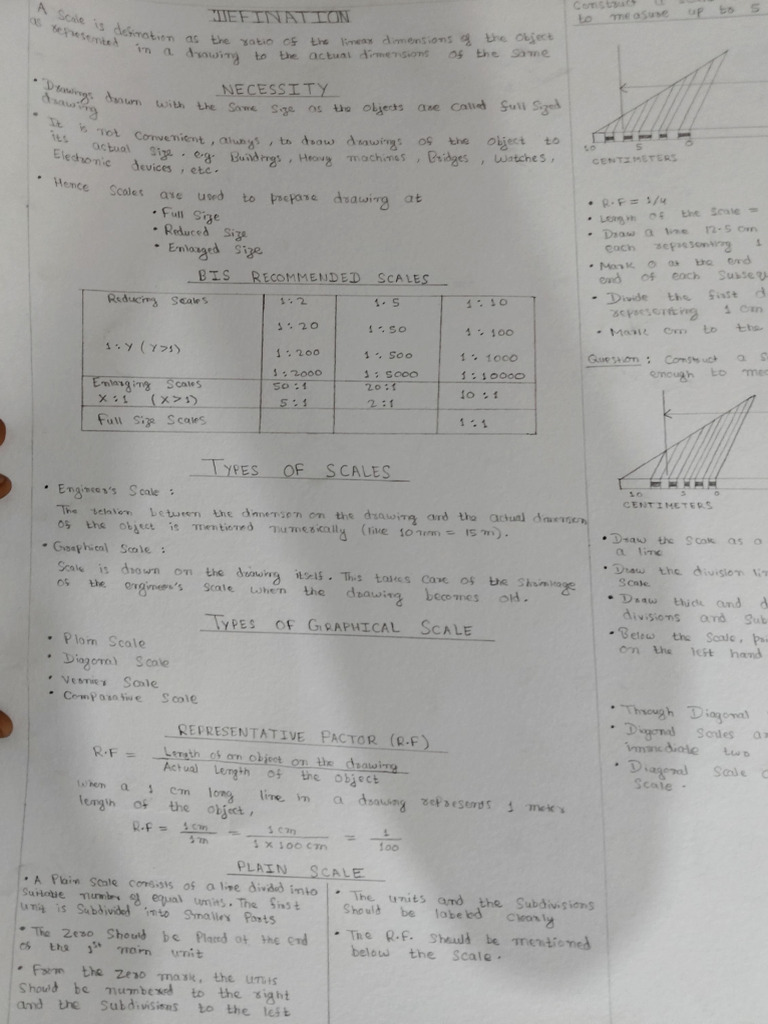 DEFINATION
A Scale is defination as the ratio of the linear dimensions of the object
as represented in a drawing to the actual dimensions of the same
NECESSITY
• Drawings drawn with the same size as the objects are called full sized
drawing
• It is not convenient, always, to draw drawings of the object to
its actual size. e.g Buildings, Heavy machines, Bridges, Watches,
Electronic devices, etc.
• Hence Scales are used to prepare drawing at
• Full Size
• Reduced Size
• Enlarged Size
BIS RECOMMENDED SCALES
Reducing Scales 1:2 1:5 1:10
1:20 1:50 1:100
1:Y (Y>1) 1:200 1:500 1:1000
1:2000 1:5000 1:10000
Enlarging Scales 50:1 20:1 10:1
X:1 (X>1) 5:1 2:1
Full Size Scales 1:1
TYPES OF SCALES
• Engineer's Scale :
The relation between the dimension on the drawing and the actual dimension
of the object is mentioned numerically (like 10mm = 15m).
• Graphical Scale :
Scale is drawn on the drawing itself. This takes care of the shrinkage
of the engineer's scale when the drawing becomes old.
TYPES OF GRAPHICAL SCALE
• Plain Scale
• Diagonal Scale
• Vernier Scale
• Comparative Scale
REPRESENTATIVE FACTOR (R.F)
R.F = Length of an object on the drawing
Actual Length of the object
When a 1 cm long line in a drawing represents 1 meter
length of the object,
R.F = 1cm / 1m = 1cm / 1 x 100cm = 1 / 100
PLAIN SCALE
• A Plain Scale consists of a line divided into
suitable number of equal units. The first
unit is subdivided into smaller parts
• The Zero should be placed at the end
of the 1st main unit
• From the Zero mark, the units
should be numbered to the right
and the subdivisions to the left
• The units and the subdivisions
should be labeled clearly
• The R.F. should be mentioned
below the scale.
Construct a
to measure up to 5
10 5 0
CENTIMETERS
• R.F = 1/4
• Length of the scale =
• Draw a line 12.5 cm
each representing 1
• Mark 0 at the end
end of each
• Divide the first
representing 1 cm
• Mark cm to the
Question : Construct a
enough to
10 5 0
CENTIMETERS
• Draw the scale as a
a line
• Draw the division
scale
• Draw thick and
divisions and
• Below the scale,
on the left hand
• Through Diagonal
• Diagonal Scales
immediate two
• Diagonal Scale
Scale.